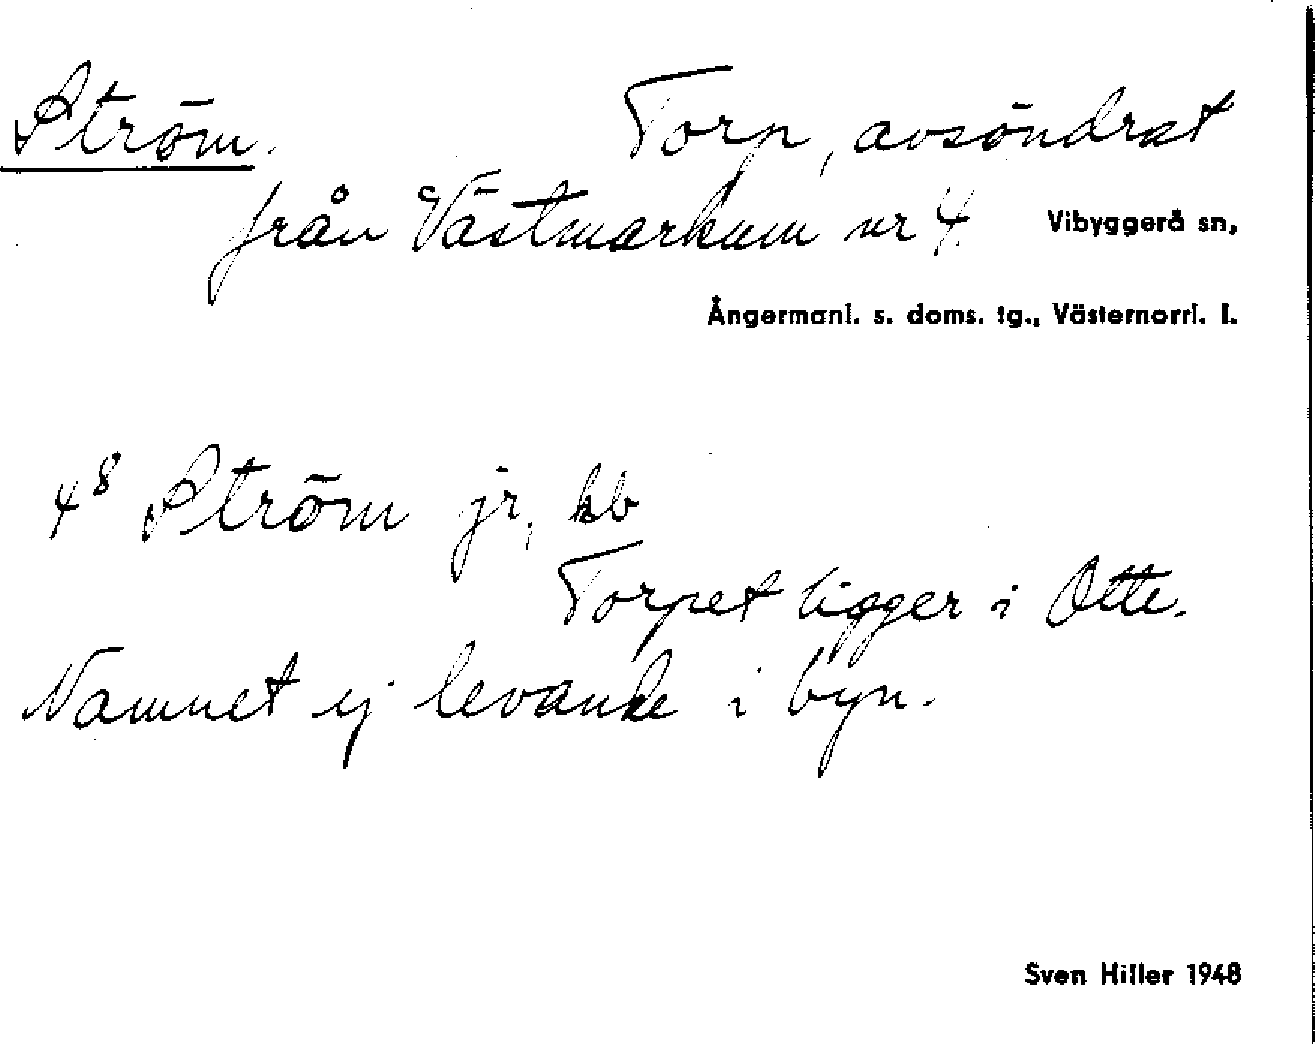 Ström. Torp, avsöndrat
från Västmarkum nr 4. Vibyggerå sn,
Ångermanl. s. doms. tg., Västernorrl. l.
4⁸ Ström jr, kb
Torpet ligger i Otte.
Namnet ej levande i byn.
Sven Hiller 1948